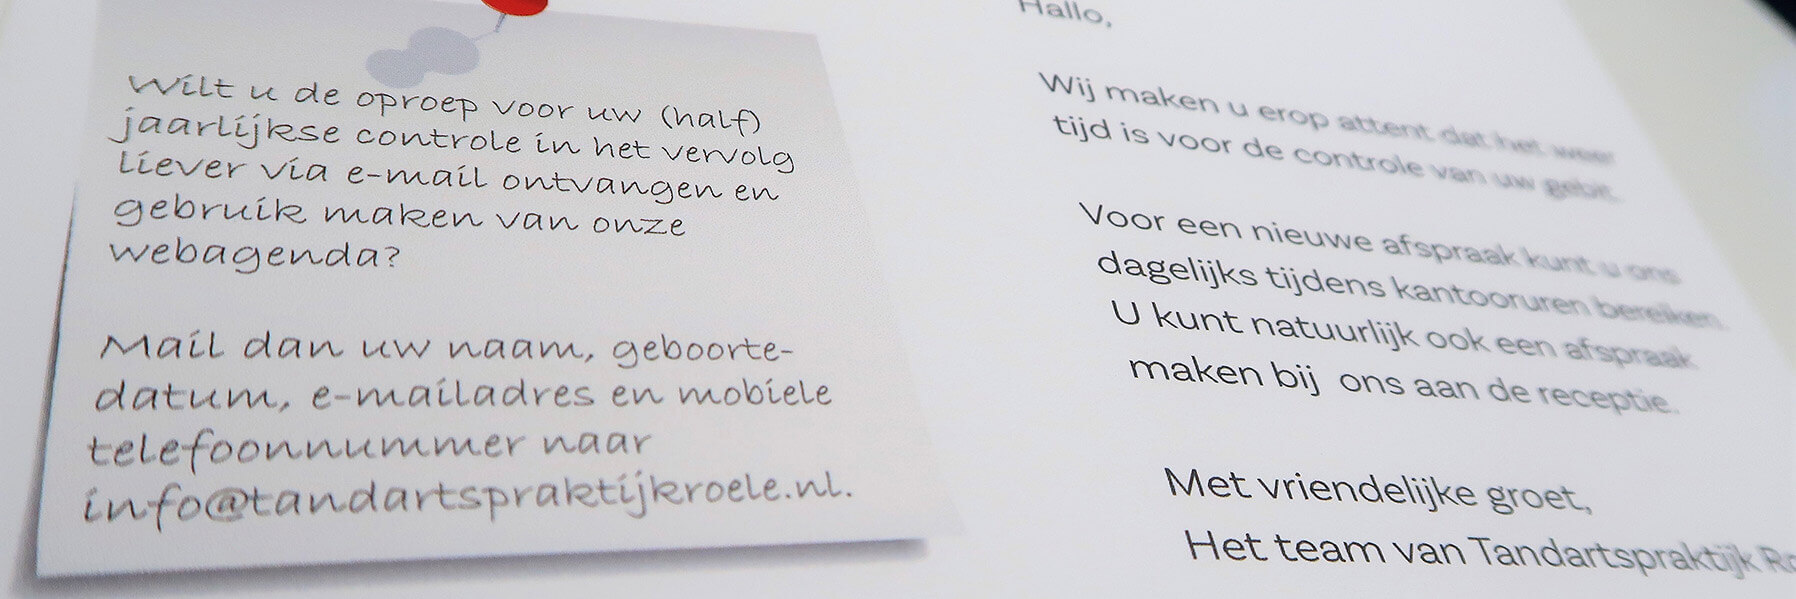 Wilt u de oproep voor uw (half)
jaarlijkse controle in het vervolg
liever via e-mail ontvangen en
gebruik maken van onze
webagenda?
Mail dan uw naam, geboorte-
datum, e-mailadres en mobiele
telefoonnummer naar
info@tandartspraktijkroele.nl.
Hallo,
Wij maken u erop attent dat het weer
tijd is voor de controle van uw gebit.
Voor een nieuwe afspraak kunt u ons
dagelijks tijdens kantooruren bereiken.
U kunt natuurlijk ook een afspraak
maken bij ons aan de receptie.
Met vriendelijke groet,
Het team van Tandartspraktijk